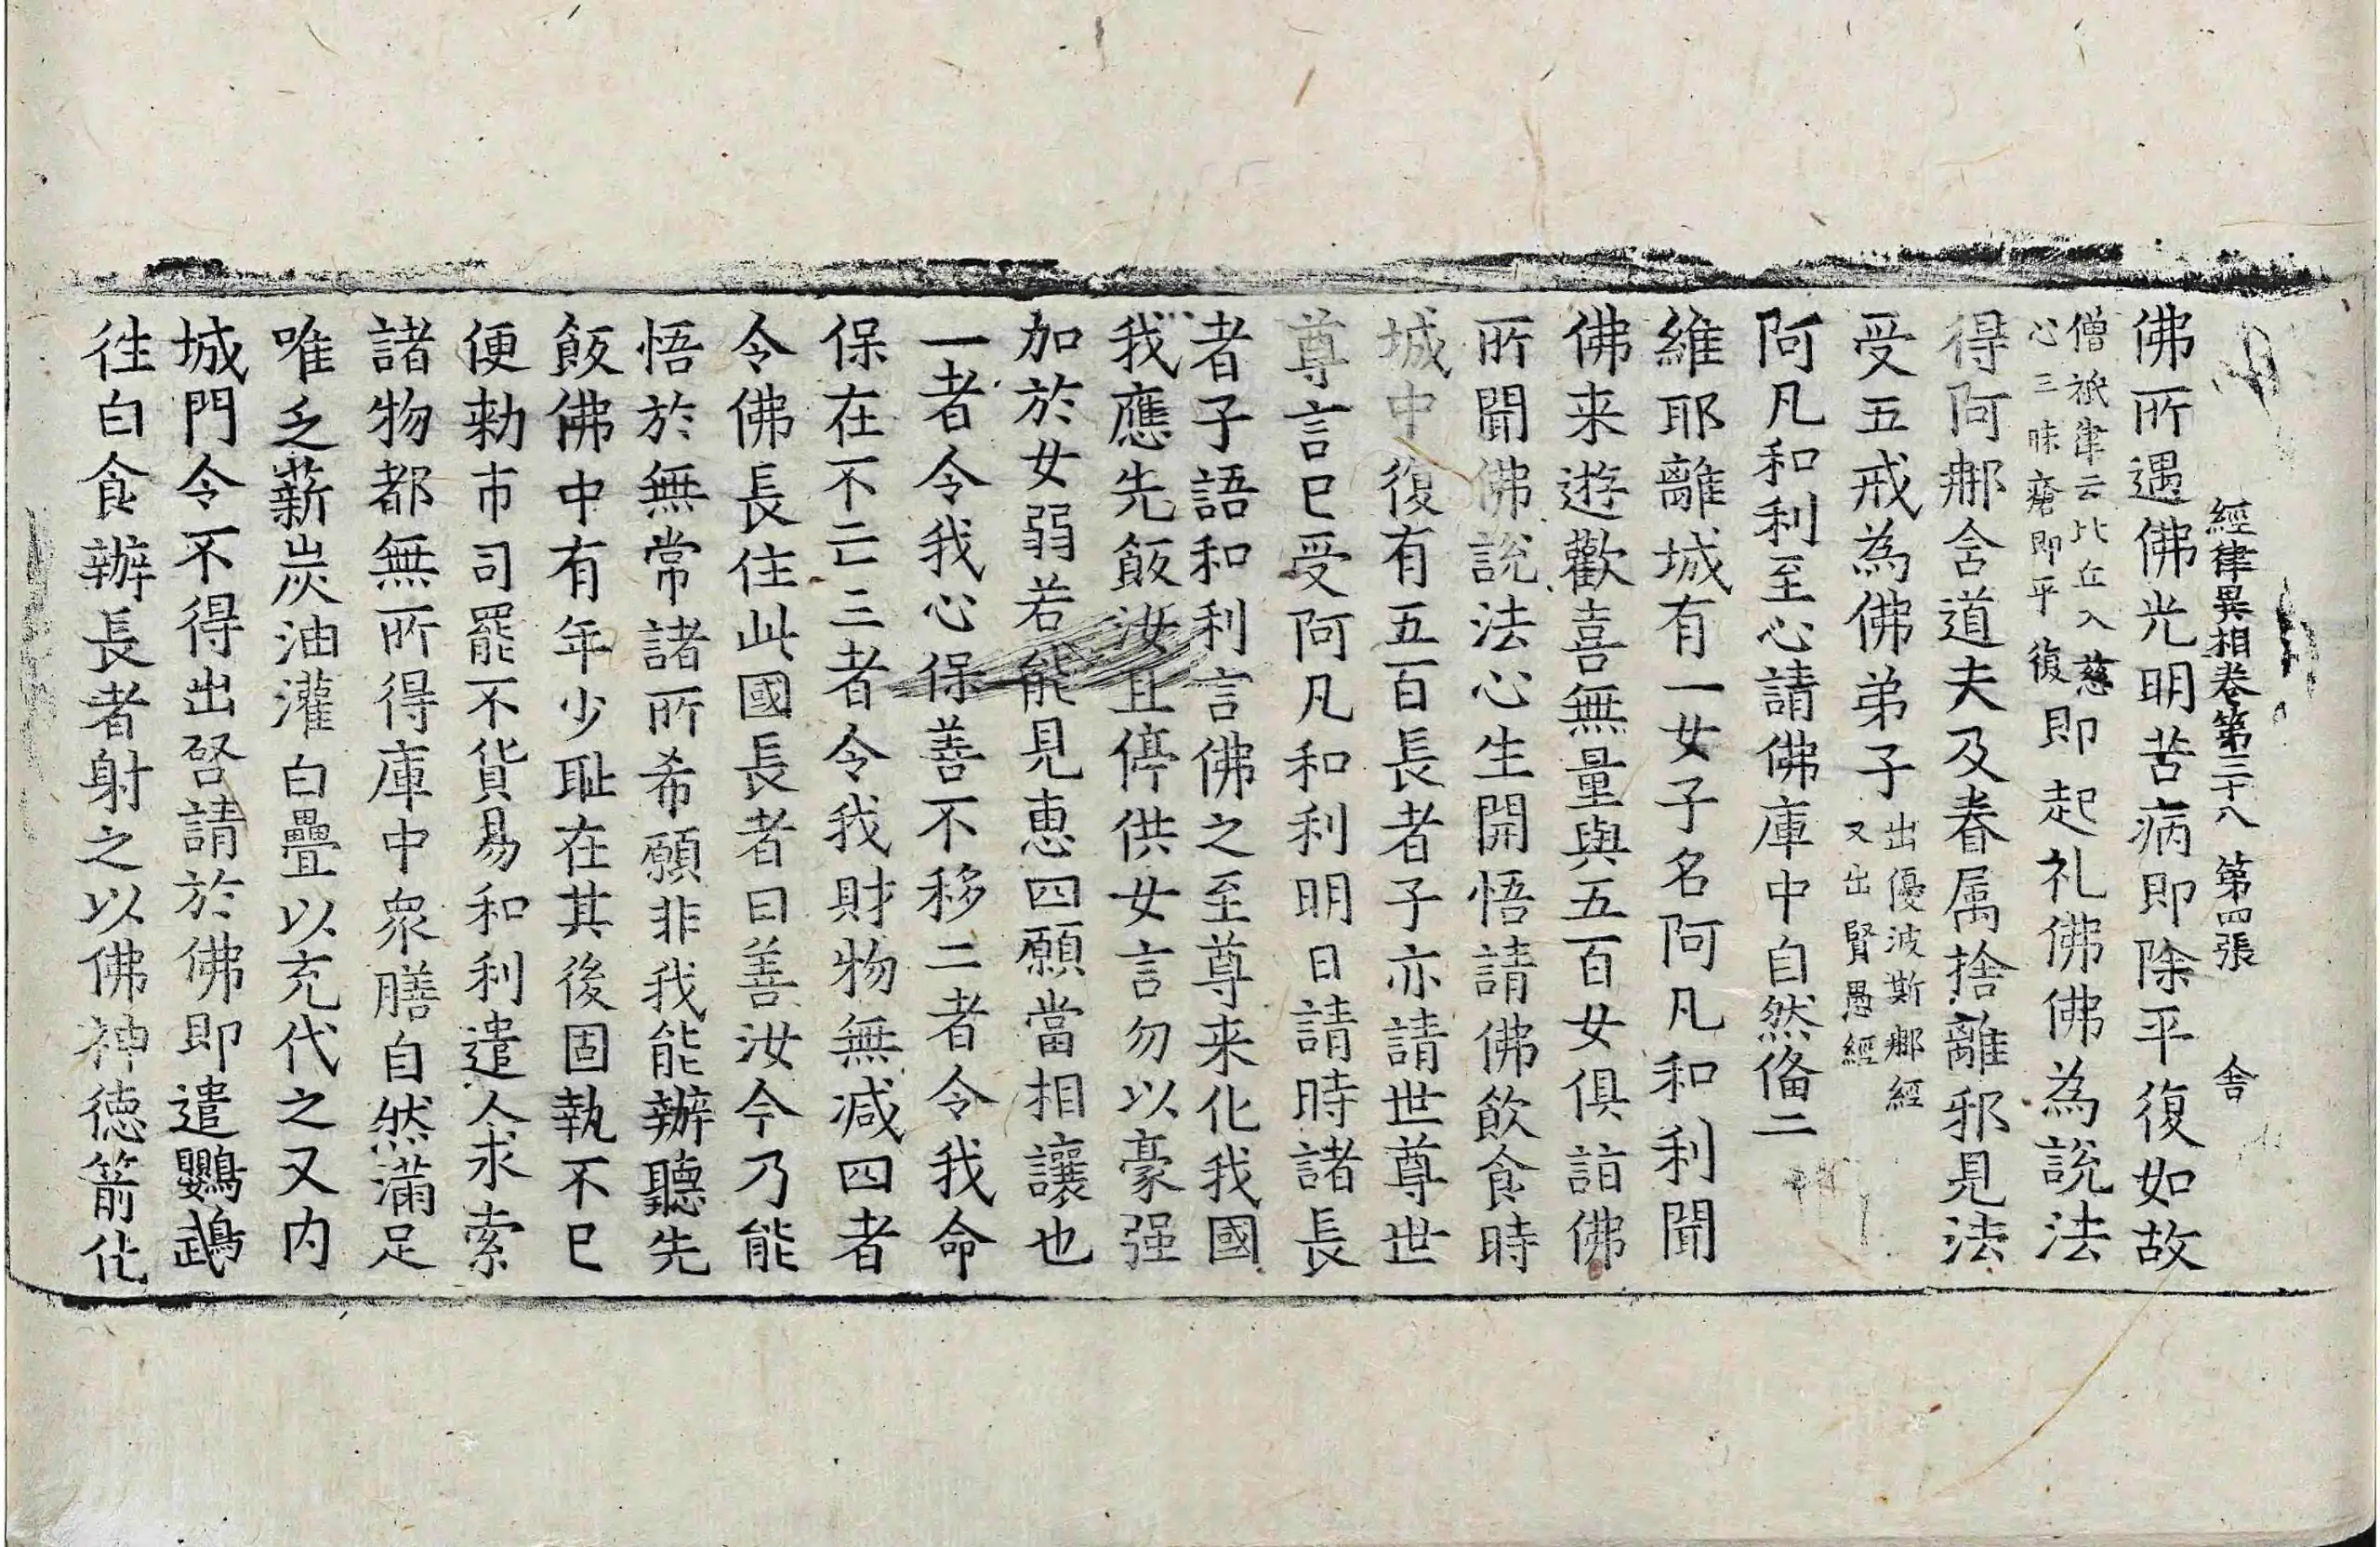 經律異相卷第三十八 第四張 舍
佛所遇佛光明苦病即除平復如故
僧祇律云比丘入慈
心三昧瘡即平復
即起礼佛佛為說法
得阿那含道夫及眷属捨離邪見法
受五戒為佛弟子
出優波斯那經
又出賢愚經
阿凡和利至心請佛庫中自然俻二
維耶離城有一女子名阿凡和利聞
佛来遊歡喜無量與五百女俱詣佛
所聞佛說法心生開悟請佛飲食時
城中復有五百長者子亦請世尊世
尊言已受阿凡和利明日請時諸長
者子語和利言佛之至尊来化我國
我應先飯汝且停供女言勿以豪强
加於女弱若能見惠四願當相讓也
一者令我心保善不移二者令我命
保在不亡三者令我財物無減四者
令佛長住此國長者曰善汝今乃能
悟於無常諸所希願非我能辦聽先
飯佛中有年少耻在其後固執不已
便勑市司罷不貨易和利遣人求索
諸物都無所得庫中衆膳自然滿足
唯乏薪炭油灌白疊以充代之又内
城門令不得出啓請於佛即遣鸚鵡
徃白食辦長者射之以佛神德箭化